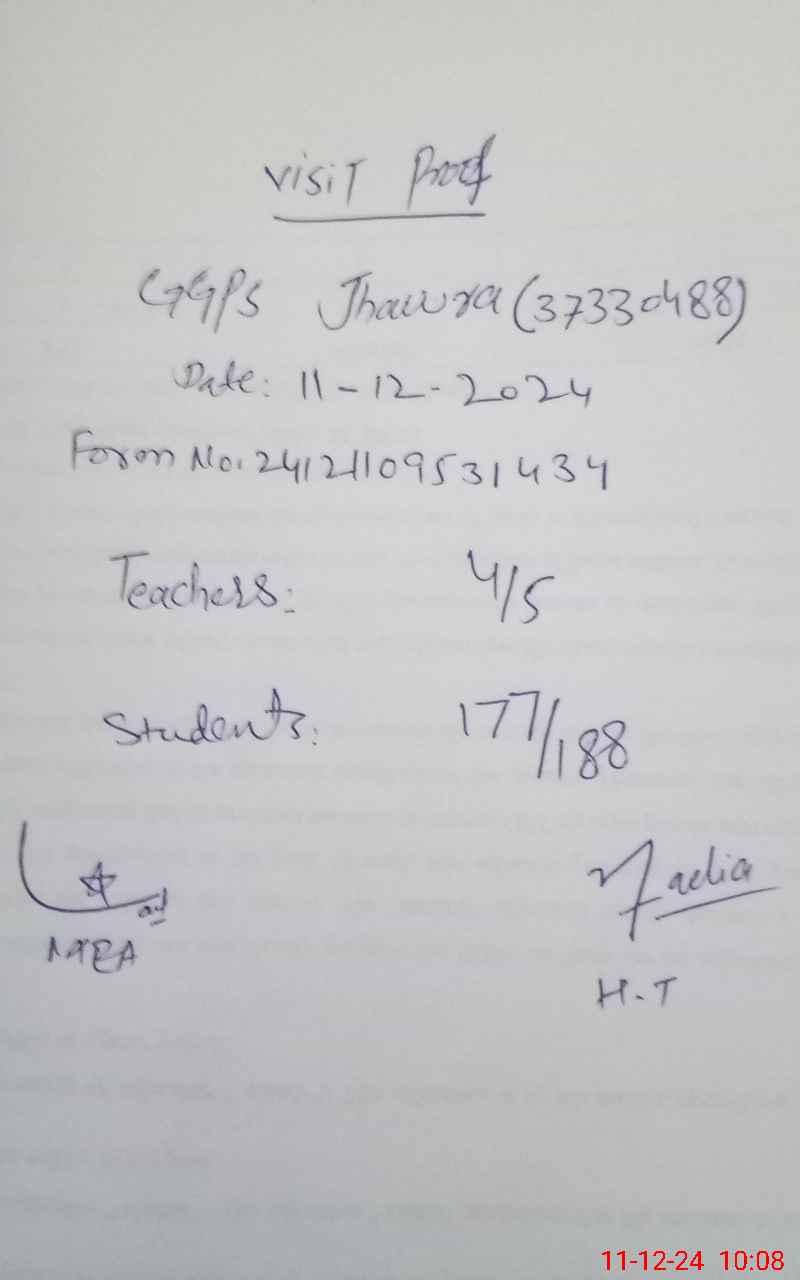 Visit Proof
GGPS Jhawra (37330488)
Date: 11-12-2024
Form No. 24121109531434
Teachers: 4/5
Students: 177/188
MEA
Nadia
H.T
11-12-24 10:08